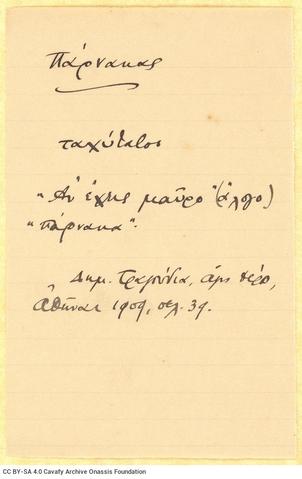 Πάρνακας
ταχύτατος
"Αν έχης μαύρο (άλογο)
"πάρνακα".
Δημ. Τραγούδια,
Αθήναι 1909, σελ. 39.
CC BY-SA 4.0 Cavafy Archive Onassis Foundation